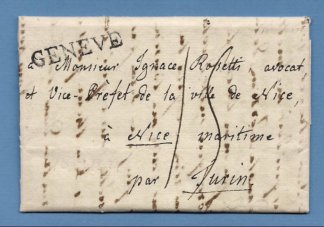 GENEVE
à Monsieur Ignace Rossetti, avocat,
et Vice-Préfet de la ville de Nice,
15
à Nice maritime
par Turin